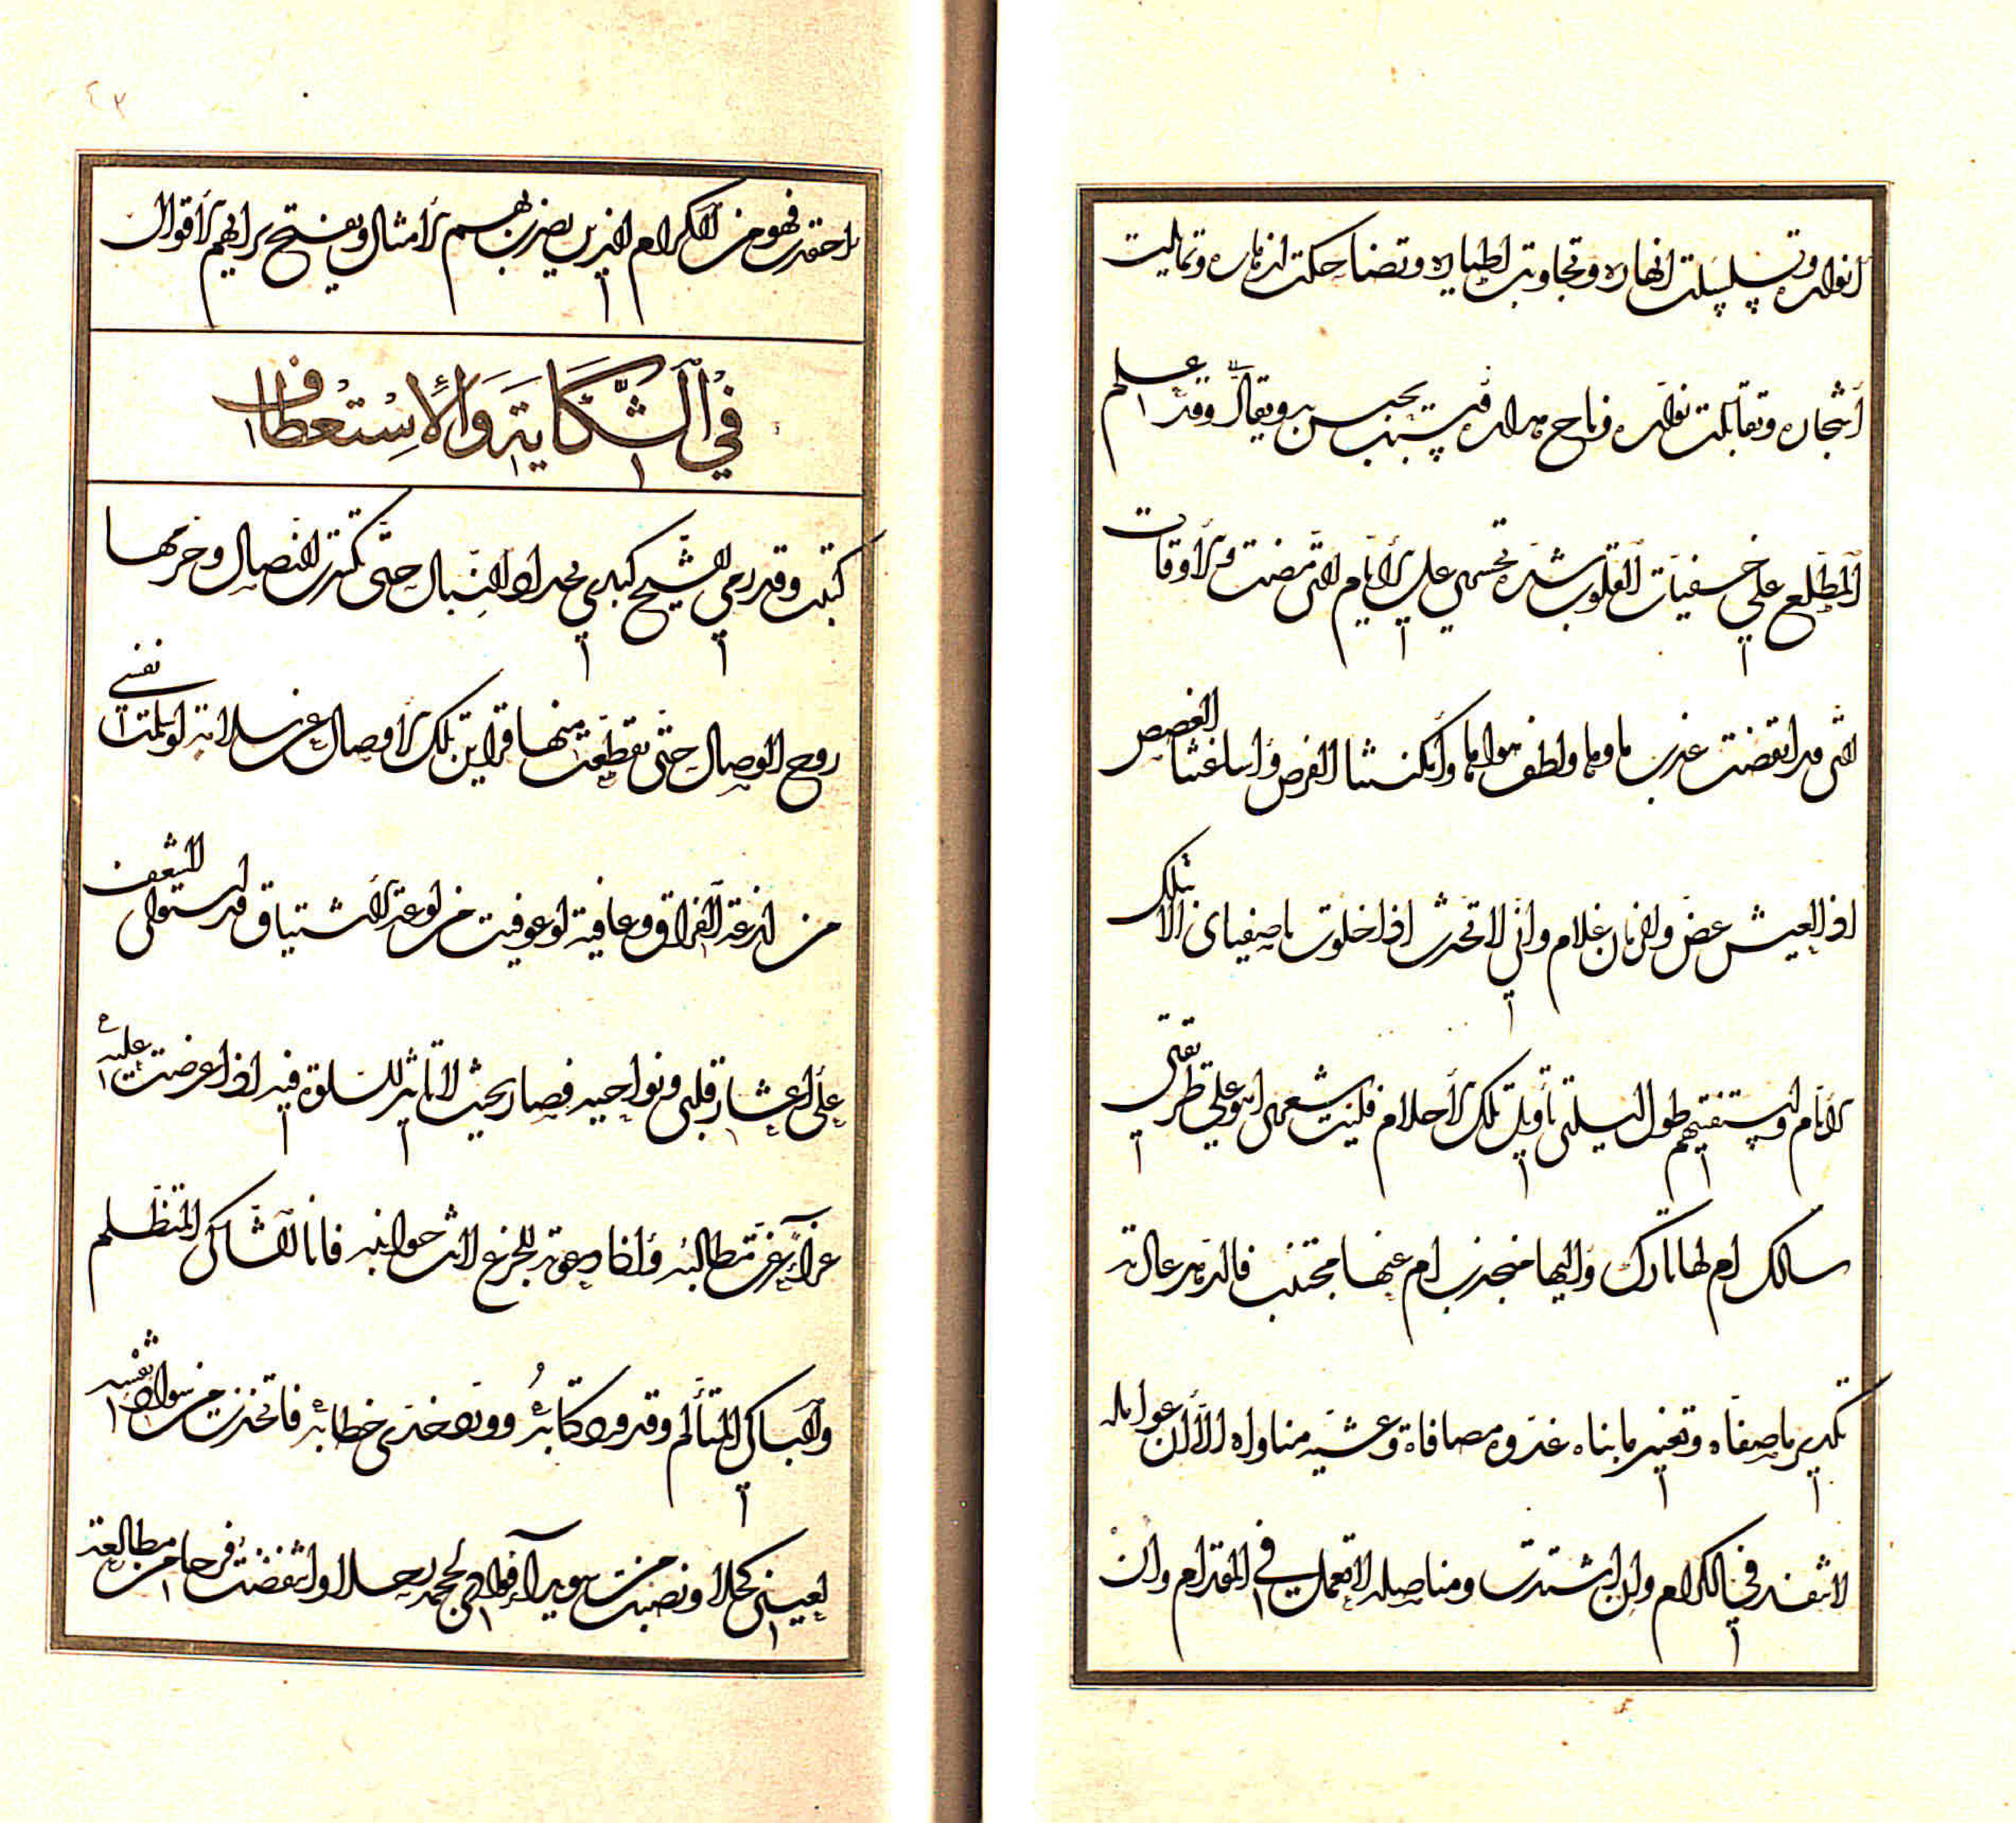 انواره وتسلسلت انهاره وتجاوبت اطياره وتضاحكت ازهاره وتمايلت
اشجاره وتقابلت نواره فناح هزاره فبت بحسن ويقال وقد علم
المطلع على خفيات القلوب شدة تحسري على الايام التي مضت والاوقات
التي قد انقضت عذب ماؤها ولطف هواؤها وأمكنتنا الفرص وأساغتنا الغصص
اذ العيش غض والزمان غلام واني لا تحدث اذا خلوت باصفياى تلك
الايام واستفتيهم طول ليلتي تأويل تلك الاحلام فليت شعري اهو على طريقتي
سالك ام لها تارك واليها منجذب ام عنها مجتنب فالدهر عادته
تكدير ما صفاه وتغيير ما بناه غدوه مصافاة وعشيه مناواه الا ان عوامله
لا تنفذ في الكرام وان اشتدت ومناصله لا تعمل في المقدام وان
احتدت فهو من الكرام الذين يضرب بهم الامثال ويفتح برايهم الاقوال
في الشكاية والاستعطاف
كتبت وقد رمي الشيخ كبدي بحداد النبال حتى تكسرت النصال وحرمها
روح الوصال حتى تقطعت منها قراين تلك الاوصال عن سلامة لو سلمت نفسي
من لذعة الفراق وعافية لو عوفيت من لوعة الاشتياق قد استولى الشغف
على اعشار قلبي ونواحيه فصار بحيث لا تاثير للسلوة فيه اذا عرضت عليه
عزاء عزت مطالبه واذا دعوته للجزع لانت جوانبه فانا الشاكي المتظلم
والباكي المتألم وقد ورد كتابه وورد خدي خطابه فاتخذت من سواد نقسه
لعيني كحلا ونصبت من سويداء فوادي لحمده محلا وانتفضت فرحا من مطالعة